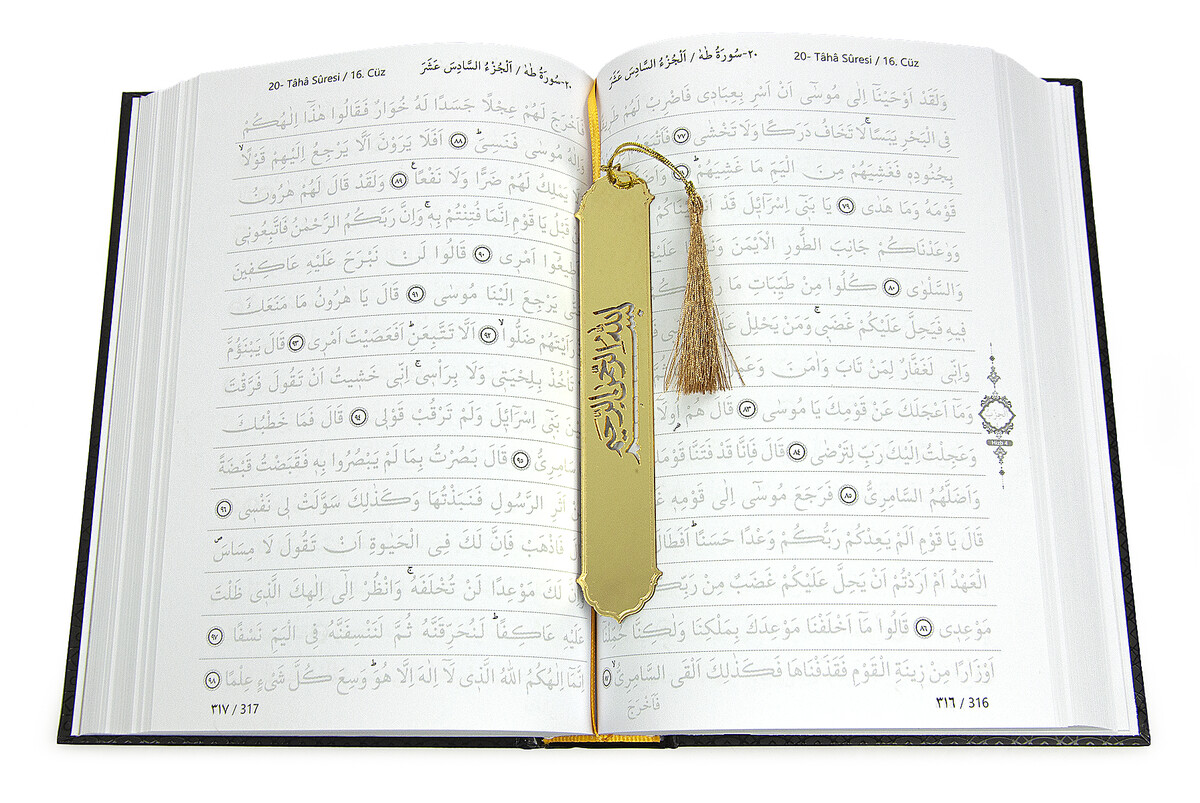 ٢٠-سُورَةُ طٰهٰ / اَلْجُزْءُ السَّادِسَ عَشَرَ 20- Tâhâ Sûresi / 16. Cüz
وَلَقَدْ اَوْحَيْنَٓا اِلٰى مُوسٰٓى اَنْ اَسْرِ بِعِبَادٖى فَاضْرِبْ لَهُمْ
فِى الْبَحْرِ يَبَسًاۚ لَا تَخَافُ دَرَكًا وَلَا تَخْشٰى ﴿٧٧﴾
بِجُنُودِهٖ فَغَشِيَهُمْ مِنَ الْيَمِّ مَا غَشِيَهُمْۜ
قَوْمَهُ وَمَا هَدٰى ﴿٧٩﴾ يَا بَنٖٓى اِسْرَٓائٖلَ قَدْ
وَوٰعَدْنَاكُمْ جَانِبَ الطُّورِ الْاَيْمَنَ
وَالسَّلْوٰى ﴿٨٠﴾ كُلُوا مِنْ طَيِّبَاتِ مَا
فٖيهِ فَيَحِلَّ عَلَيْكُمْ غَضَبٖىۚ وَمَنْ يَحْلِلْ
وَاِنّٖى لَغَفَّارٌ لِمَنْ تَابَ وَاٰمَنَ
وَمَٓا اَعْجَلَكَ عَنْ قَوْمِكَ يَا مُوسٰى ﴿٨٣﴾ قَالَ هُمْ
وَعَجِلْتُ اِلَيْكَ رَبِّ لِتَرْضٰى ﴿٨٤﴾ قَالَ فَاِنَّا قَدْ فَتَنَّا
وَاَضَلَّهُمُ السَّامِرِىُّ ﴿٨٥﴾ فَرَجَعَ مُوسٰٓى اِلٰى قَوْمِهٖ
قَالَ يَا قَوْمِ اَلَمْ يَعِدْكُمْ رَبُّكُمْ وَعْدًا حَسَنًاۜ
الْعَهْدُ اَمْ اَرَدْتُمْ اَنْ يَحِلَّ عَلَيْكُمْ غَضَبٌ مِنْ
مَوْعِدٖى ﴿٨٦﴾ قَالُوا مَٓا اَخْلَفْنَا مَوْعِدَكَ بِمَلْكِنَا وَلٰكِنَّا حُمِّلْنَٓا
اَوْزَارًا مِنْ زٖينَةِ الْقَوْمِ فَقَذَفْنَاهَا فَكَذٰلِكَ اَلْقَى السَّامِرِىُّۙ
فَاَخْرَجَ
٣١٦ / 316
Hizb 4
بِسْمِ اللّٰهِ الرَّحْمٰنِ الرَّحِيمِ
20- Tâhâ Sûresi / 16. Cüz ٢٠-سُورَةُ طٰهٰ / اَلْجُزْءُ السَّادِسَ عَشَرَ
فَاَخْرَجَ لَهُمْ عِجْلًا جَسَدًا لَهُ خُوَارٌ فَقَالُوا هٰذَٓا اِلٰهُكُمْ
وَاِلٰهُ مُوسٰى فَنَسِىَۜ ﴿٨٨﴾ اَفَلَا يَرَوْنَ اَلَّا يَرْجِعُ اِلَيْهِمْ قَوْلًاۙ
يَمْلِكُ لَهُمْ ضَرًّا وَلَا نَفْعًاࣖ ﴿٨٩﴾ وَلَقَدْ قَالَ لَهُمْ هٰرُونُ
قَبْلُ يَا قَوْمِ اِنَّمَا فُتِنْتُمْ بِهٖۚ وَاِنَّ رَبَّكُمُ الرَّحْمٰنُ فَاتَّبِعُونٖى
اَمْرٖى ﴿٩٠﴾ قَالُوا لَنْ نَبْرَحَ عَلَيْهِ عَاكِفٖينَ
يَرْجِعَ اِلَيْنَا مُوسٰى ﴿٩١﴾ قَالَ يَا هٰرُونُ مَا مَنَعَكَ
رَاَيْتَهُمْ ضَلُّواۙ ﴿٩٢﴾ اَلَّا تَتَّبِعَنِۜ اَفَعَصَيْتَ اَمْرٖى ﴿٩٣﴾ قَالَ يَبْنَؤُمَّ
تَأْخُذْ بِلِحْيَتٖى وَلَا بِرَأْسٖىۚ اِنّٖى خَشٖيتُ اَنْ تَقُولَ فَرَّقْتَ
بَنٖٓى اِسْرَٓائٖلَ وَلَمْ تَرْقُبْ قَوْلٖى ﴿٩٤﴾ قَالَ فَمَا خَطْبُكَ
﴿٩٥﴾ قَالَ بَصُرْتُ بِمَا لَمْ يَبْصُرُوا بِهٖ فَقَبَضْتُ قَبْضَةً
اَثَرِ الرَّسُولِ فَنَبَذْتُهَا وَكَذٰلِكَ سَوَّلَتْ لٖى نَفْسٖى ﴿٩٦﴾
فَاذْهَبْ فَاِنَّ لَكَ فِى الْحَيٰوةِ اَنْ تَقُولَ لَا مِسَاسَۖ
لَكَ مَوْعِدًا لَنْ تُخْلَفَهُۚ وَانْظُرْ اِلٰٓى اِلٰهِكَ الَّذٖى ظَلْتَ
عَلَيْهِ عَاكِفًاۜ لَنُحَرِّقَنَّهُ ثُمَّ لَنَنْسِفَنَّهُ فِى الْيَمِّ نَسْفًا ﴿٩٧﴾
اِنَّمَٓا اِلٰهُكُمُ اللّٰهُ الَّذٖى لَٓا اِلٰهَ اِلَّا هُوَۜ وَسِعَ كُلَّ شَىْءٍ عِلْمًا ﴿٩٨﴾
٣١٧ / 317